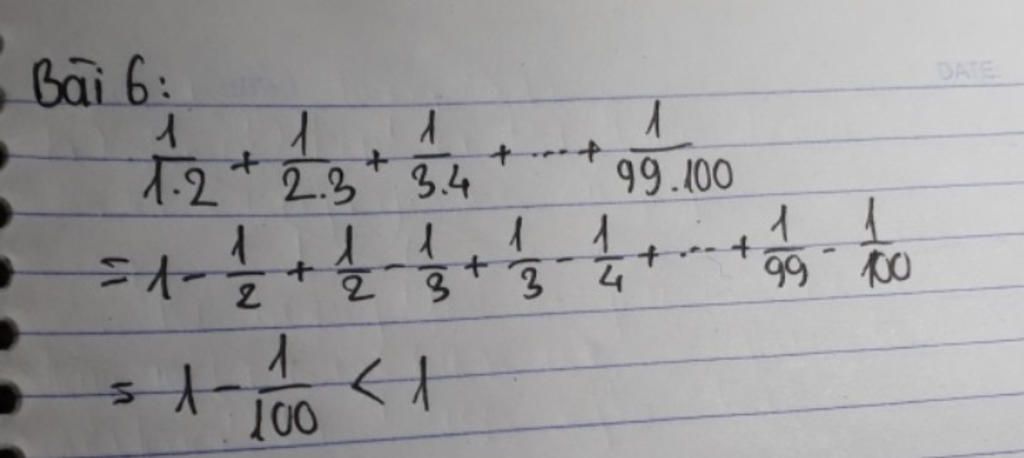 DATE:
Bài 6:
1/1.2 + 1/2.3 + 1/3.4 + ... + 1/99.100
= 1 - 1/2 + 1/2 - 1/3 + 1/3 - 1/4 + ... + 1/99 - 1/100
= 1 - 1/100 < 1